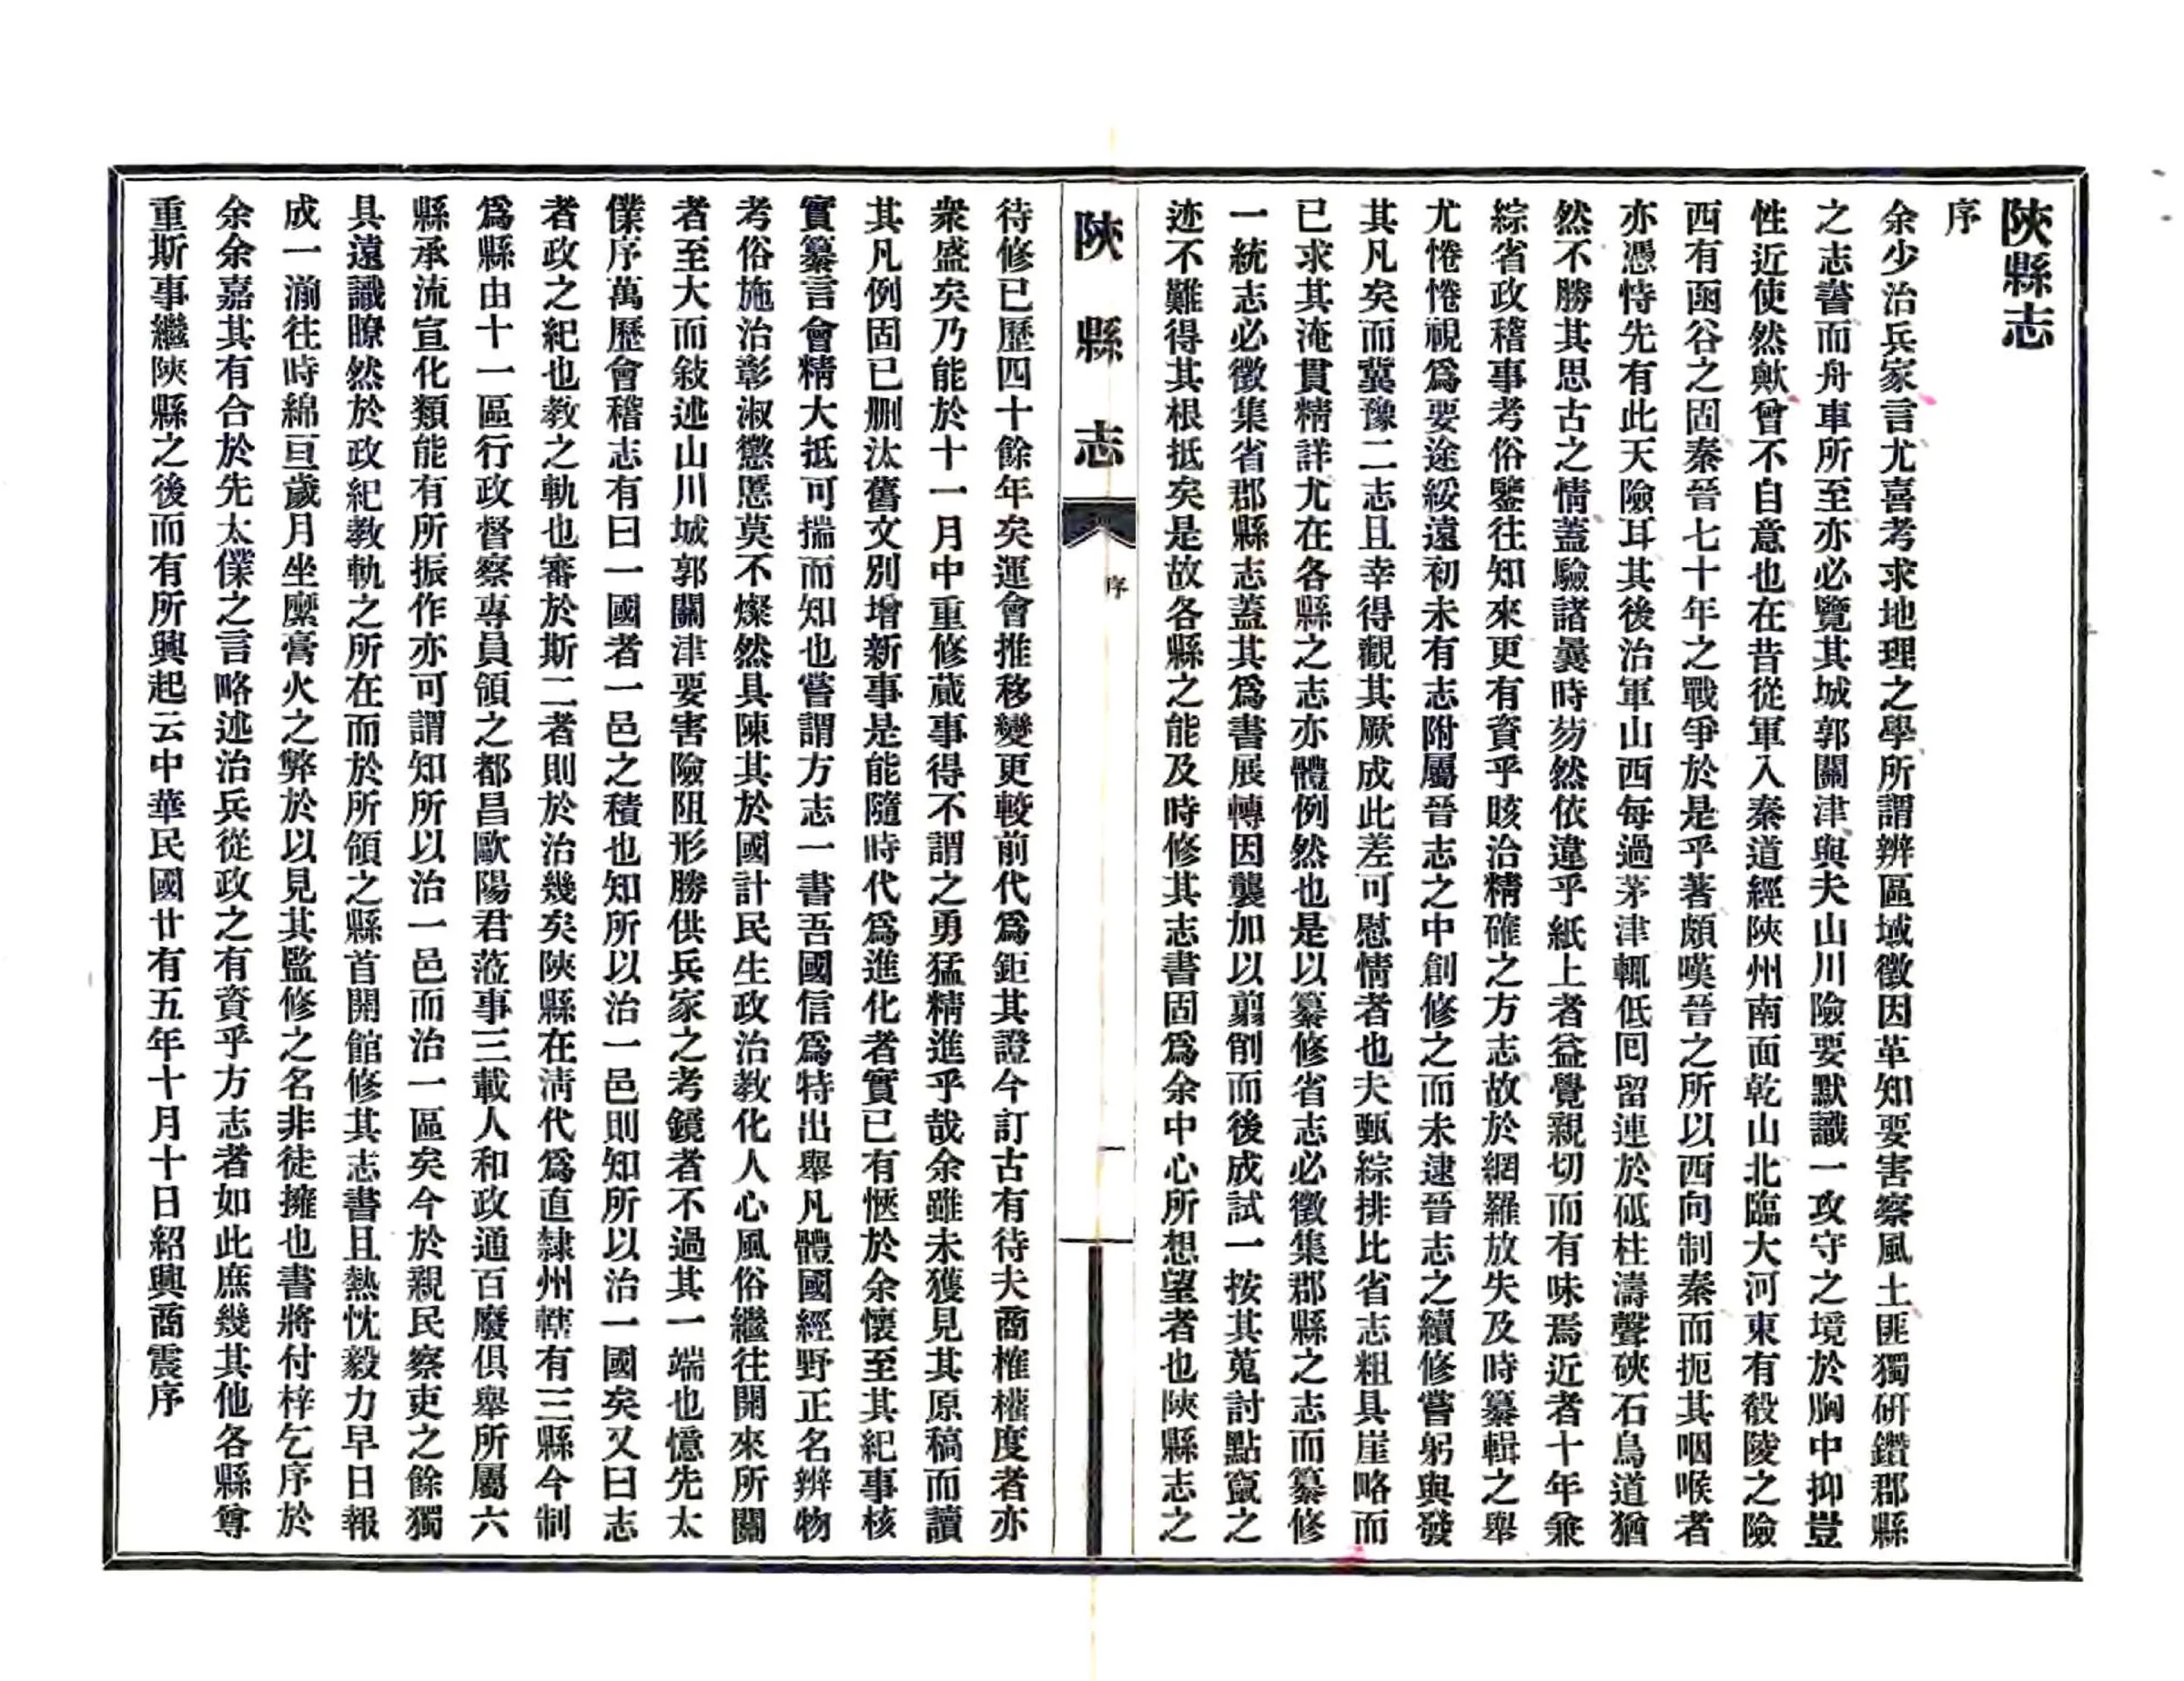 陝縣志
序
余少治兵家言尤喜考求地理之學所謂辨區域徵因革知要害察風土匪獨研鑽郡縣
之志書而舟車所至亦必覽其城郭關津與夫山川險要默識一攻守之境於胸中抑豈
性近使然歟曾不自意也在昔從軍入秦道經陝州南面乾山北臨大河東有殽陵之險
西有函谷之固秦晉七十年之戰爭於是乎著頗嘆晉之所以西向制秦而扼其咽喉者
亦憑恃先有此天險耳其後治軍山西每過茅津輒低囘留連於砥柱濤聲硤石鳥道猶
然不勝其思古之情蓋驗諸曩時芴然依違乎紙上者益覺親切而有味焉近者十年兼
綜省政稽事考俗鑒往知來更有資乎賅洽精確之方志故於網羅放失及時纂輯之舉
尤惓惓視爲要途綏遠初未有志附屬晉志之中創修之而未逮晉志之續修嘗躬與發
其凡矣而冀豫二志且幸得觀其厥成此差可慰情者也夫甄綜排比省志粗具崖略而
已求其淹貫精詳尤在各縣之志亦體例然也是以纂修省志必徵集郡縣之志而纂修
一統志必徵集省郡縣志蓋其爲書展轉因襲加以剪削而後成試一按其蒐討點竄之
迹不難得其根抵矣是故各縣之能及時修其志書固爲余中心所想望者也陝縣志之
陝縣志
序
一
待修已歷四十餘年矣運會推移變更較前代爲鉅其證今訂古有待夫商榷權度者亦
衆盛矣乃能於十一月中重修蕆事得不謂之勇猛精進乎哉余雖未獲見其原稿而讀
其凡例固已刪汰舊文別增新事是能隨時代爲進化者實已有愜於余懷至其紀事核
實纂言會精大抵可揣而知也嘗謂方志一書吾國信爲特出舉凡體國經野正名辨物
考俗施治彰淑懲慝莫不燦然具陳其於國計民生政治教化人心風俗繼往開來所關
者至大而敍述山川城郭關津要害險阻形勝供兵家之考鏡者不過其一端也憶先太
僕序萬歷會稽志有曰一國者一邑之積也知所以治一邑則知所以治一國矣又曰志
者政之紀也教之軌也審於斯二者則於治幾矣陝縣在淸代爲直隸州轄有三縣今制
爲縣由十一區行政督察專員領之都昌歐陽君蒞事三載人和政通百廢俱舉所屬六
縣承流宣化類能有所振作亦可謂知所以治一邑而治一區矣今於親民察吏之餘獨
具遠識瞭然於政紀教軌之所在而於所領之縣首開館修其志書且熱忱毅力早日報
成一湔往時綿亘歲月坐糜膏火之弊於以見其監修之名非徒擁也書將付梓乞序於
余余嘉其有合於先太僕之言略述治兵從政之有資乎方志者如此庶幾其他各縣尊
重斯事繼陝縣之後而有所興起云中華民國廿有五年十月十日紹興商震序